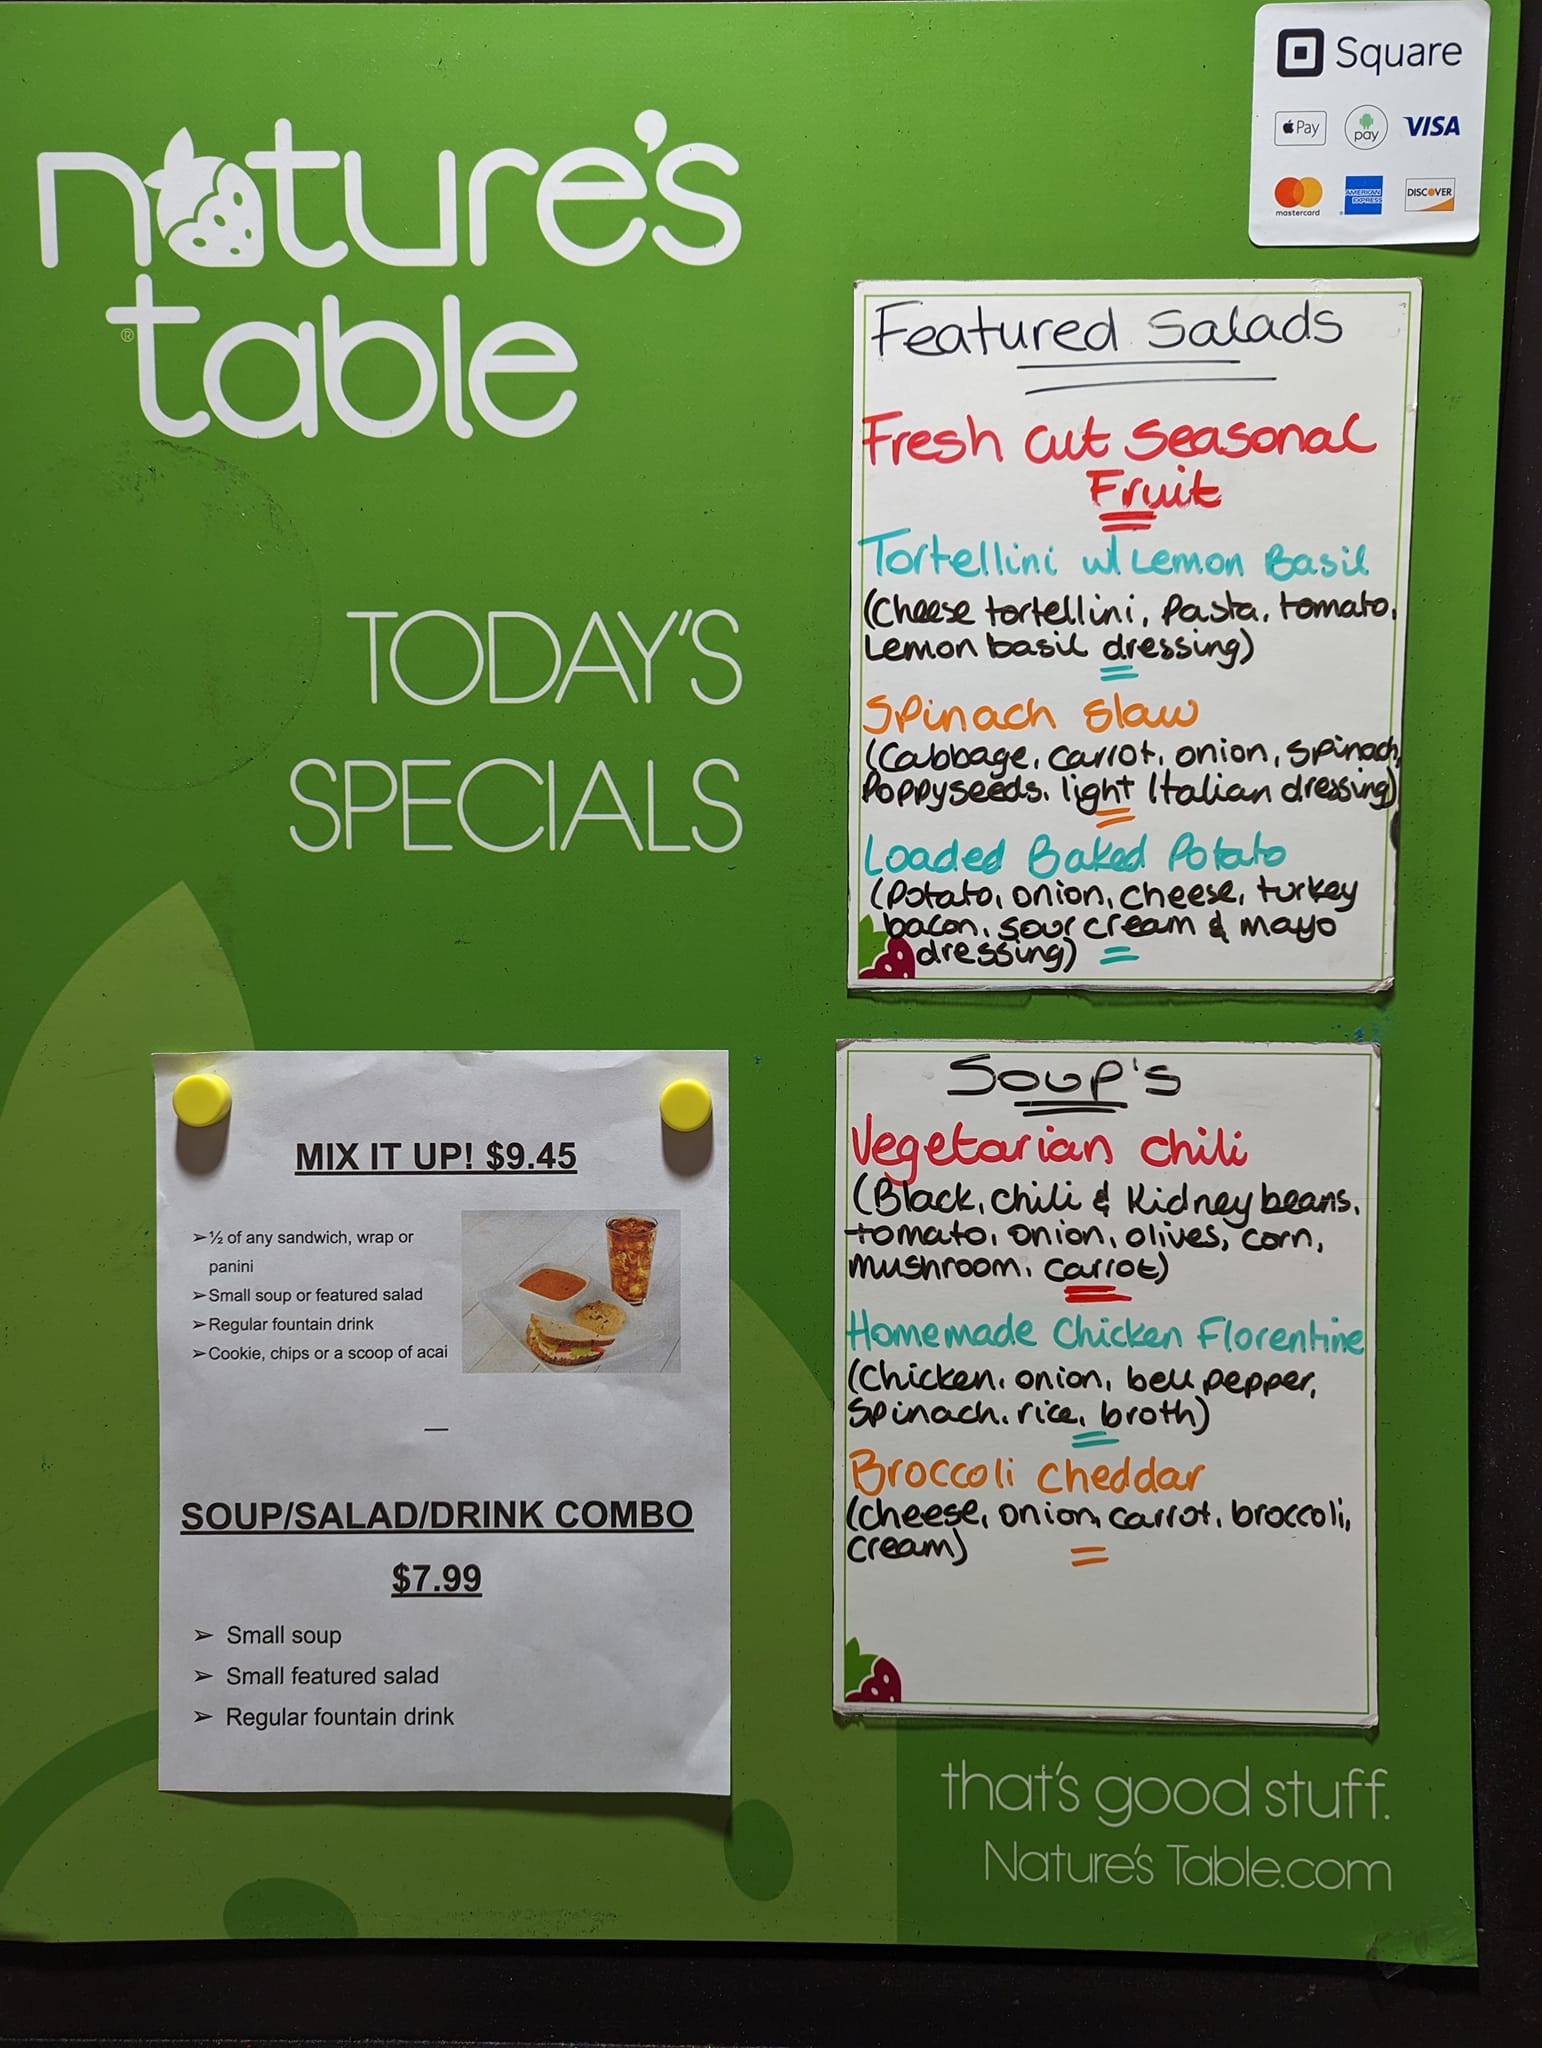 Square
Pay
pay
VISA
mastercard
AMERICAN
EXPRESS
DISCOVER
nature's
table
®
TODAY'S
SPECIALS
Featured Salads
Fresh Cut Seasonal
Fruit
Tortellini w/ Lemon Basil
(Cheese tortellini, Pasta, tomato,
Lemon basil dressing)
Spinach Slaw
(Cabbage, carrot, onion, spinach,
Poppyseeds, light Italian dressing)
Loaded Baked Potato
(Potato, onion, cheese, turkey
bacon, sour cream & mayo
dressing)
MIX IT UP! $9.45
➢½ of any sandwich, wrap or
panini
➢Small soup or featured salad
➢Regular fountain drink
➢Cookie, chips or a scoop of acai
SOUP/SALAD/DRINK COMBO
$7.99
➢ Small soup
➢ Small featured salad
➢ Regular fountain drink
Soup's
Vegetarian Chili
(Black, chili & Kidney beans,
tomato, onion, olives, corn,
mushroom, carrot)
Homemade Chicken Florentine
(Chicken, onion, bell pepper,
Spinach, rice, broth)
Broccoli Cheddar
(cheese, onion, carrot, broccoli,
cream)
that's good stuff.
Nature's Table.com